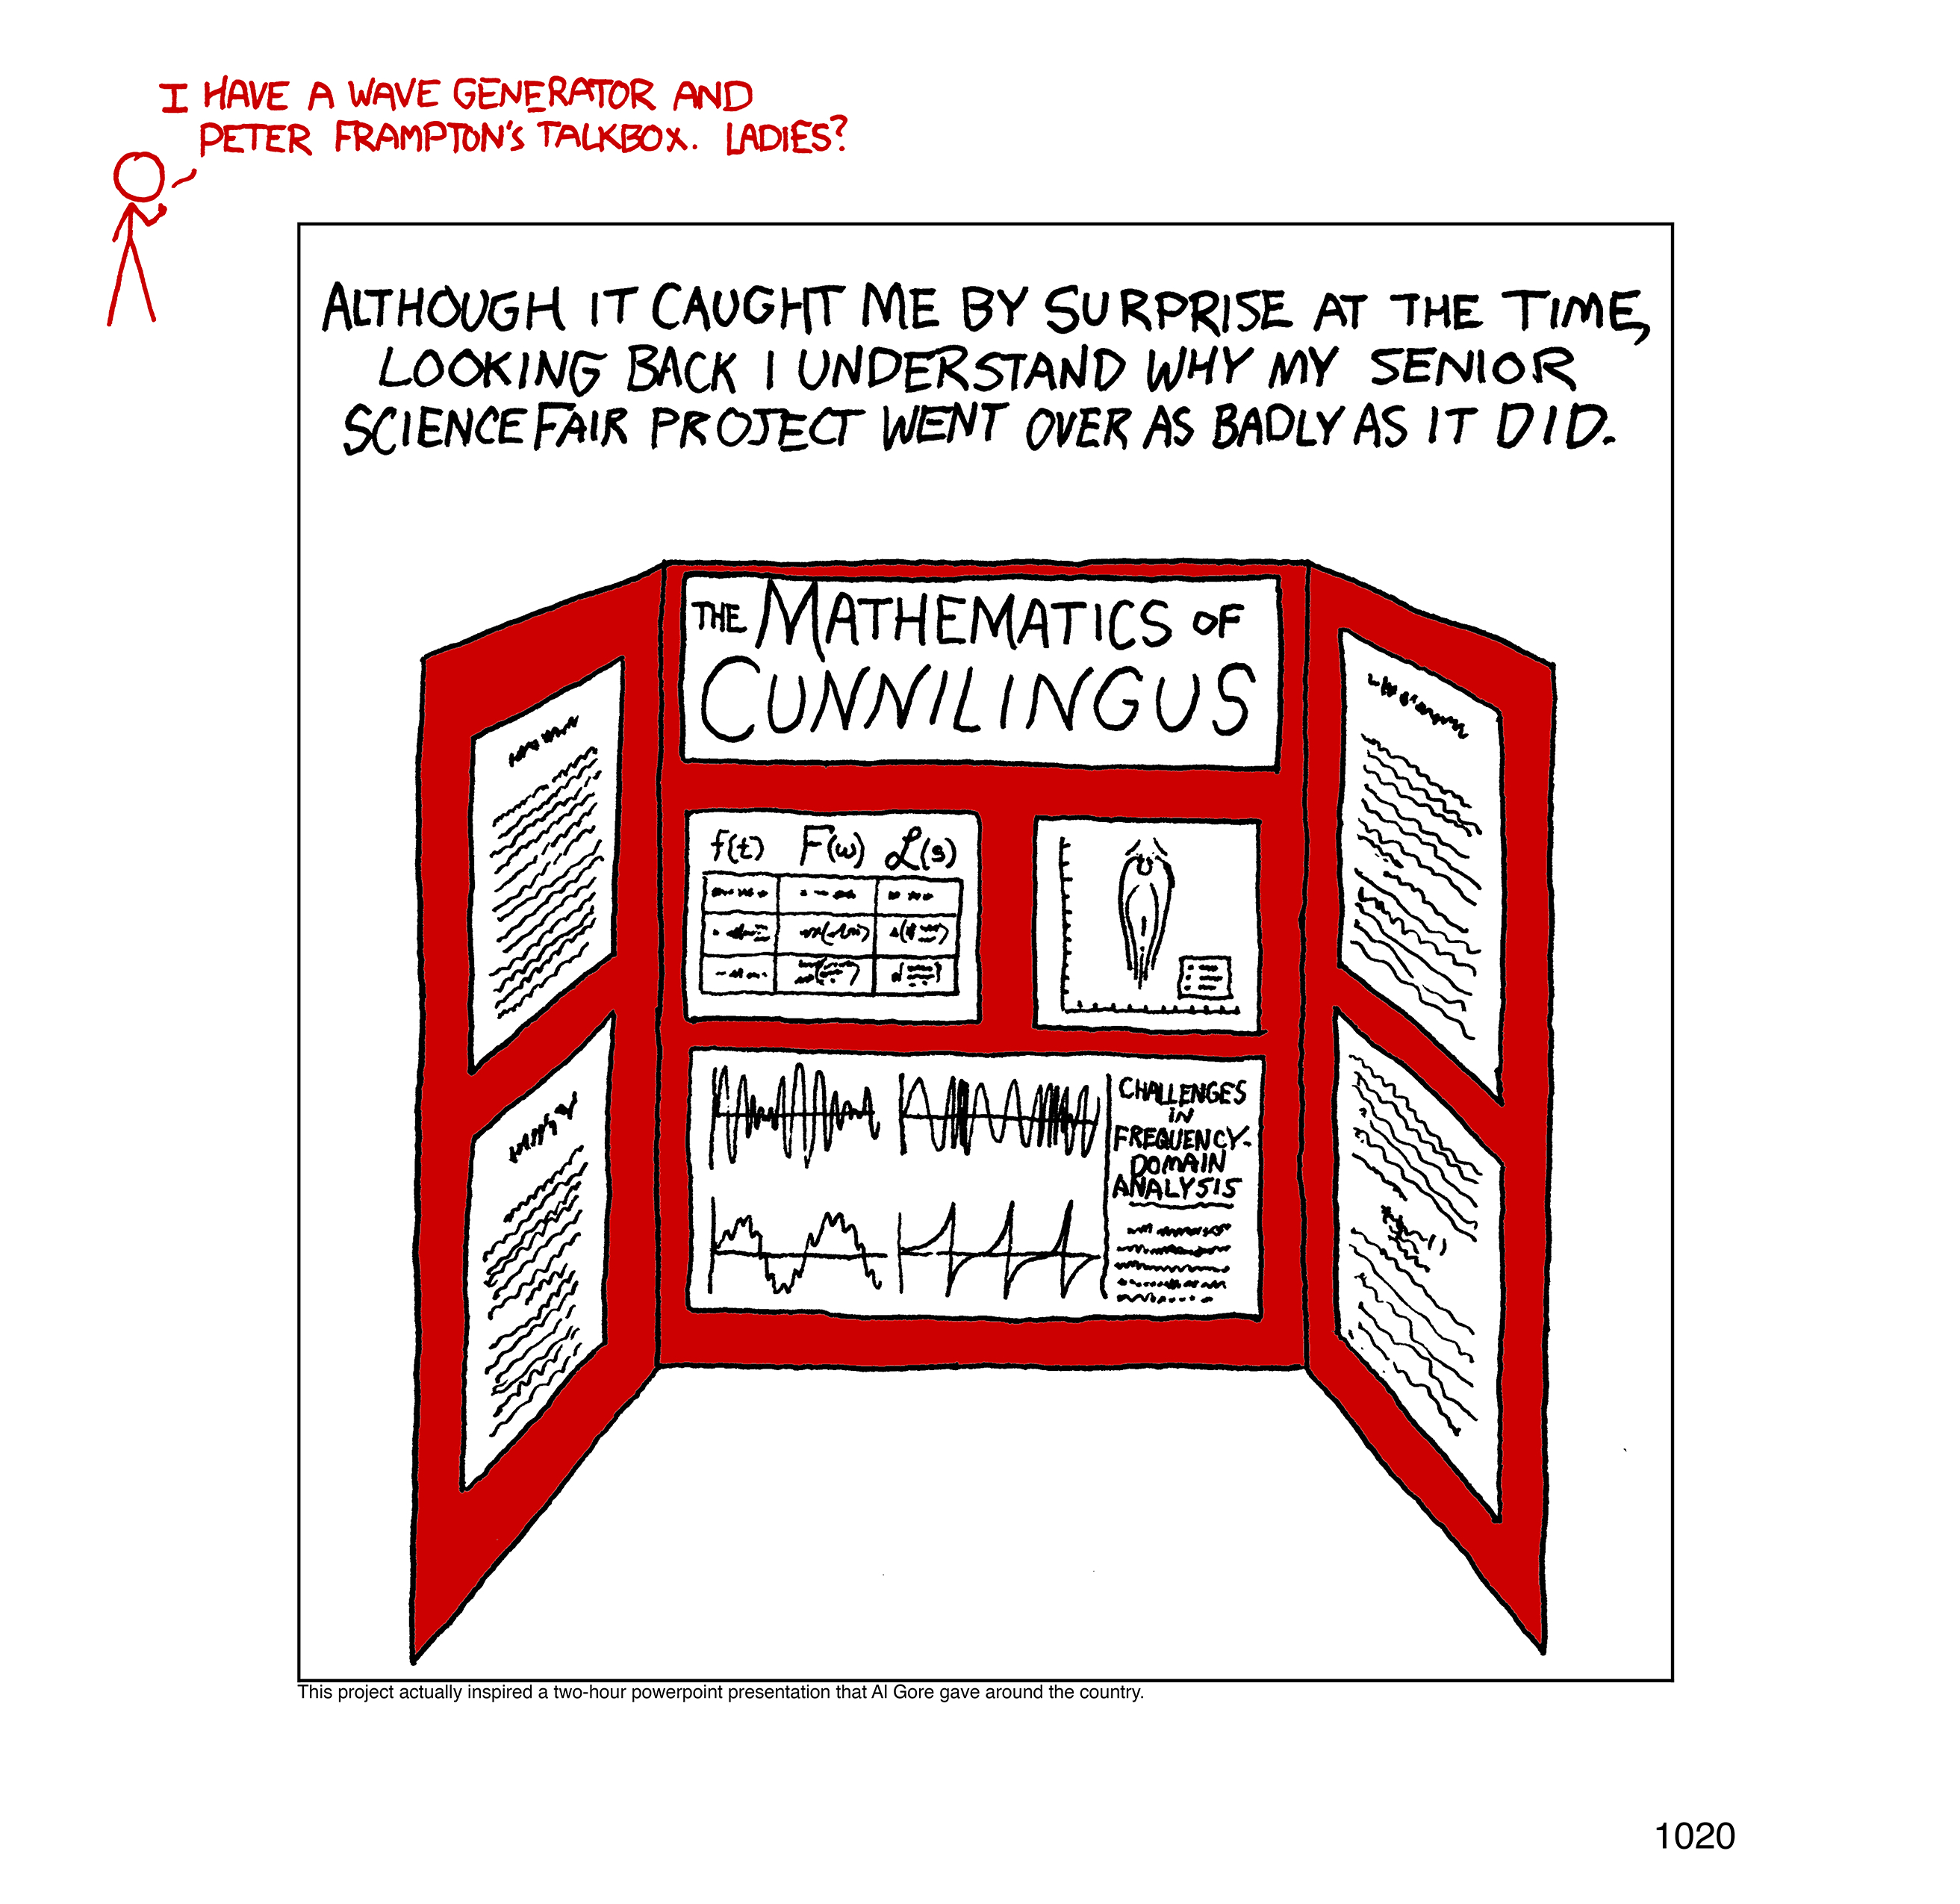 I HAVE A WAVE GENERATOR AND
PETER FRAMPTON'S TALKBOX. LADIES?
ALTHOUGH IT CAUGHT ME BY SURPRISE AT THE TIME,
LOOKING BACK I UNDERSTAND WHY MY SENIOR
SCIENCE FAIR PROJECT WENT OVER AS BADLY AS IT DID.
THE MATHEMATICS OF
CUNNILINGUS
f(t) F(ω) ℒ(s)
CHALLENGES
IN
FREQUENCY-
DOMAIN
ANALYSIS
This project actually inspired a two-hour powerpoint presentation that Al Gore gave around the country.
1020